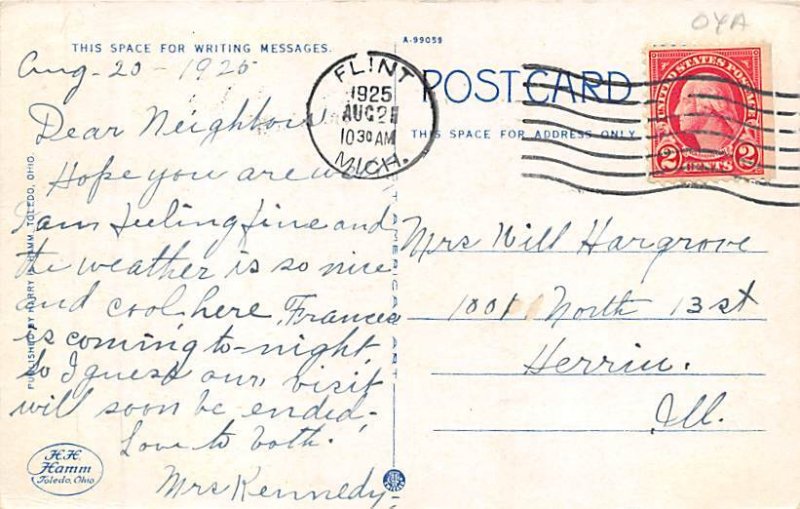 THIS SPACE FOR WRITING MESSAGES.
Aug-20-1925
Dear Neighbors
Hope you are
I am feeling fine and
the weather is so nice
and cool here, Frances
is coming to-night,
so I guess our visit
will soon be ended.
Love to both.
Mrs Kennedy
PUBLISHED BY HARRY H. HAMM, TOLEDO, OHIO.
H.H.
Hamm
Toledo, Ohio
A-99059
POST CARD
THIS SPACE FOR ADDRESS ONLY
OYA
FLINT
1925
AUG 21
10 30 AM
MICH.
UNITED STATES POSTAGE
2 CENTS 2
Mrs Will Hargrove
1001 North 13 st
Herrin.
Ill.